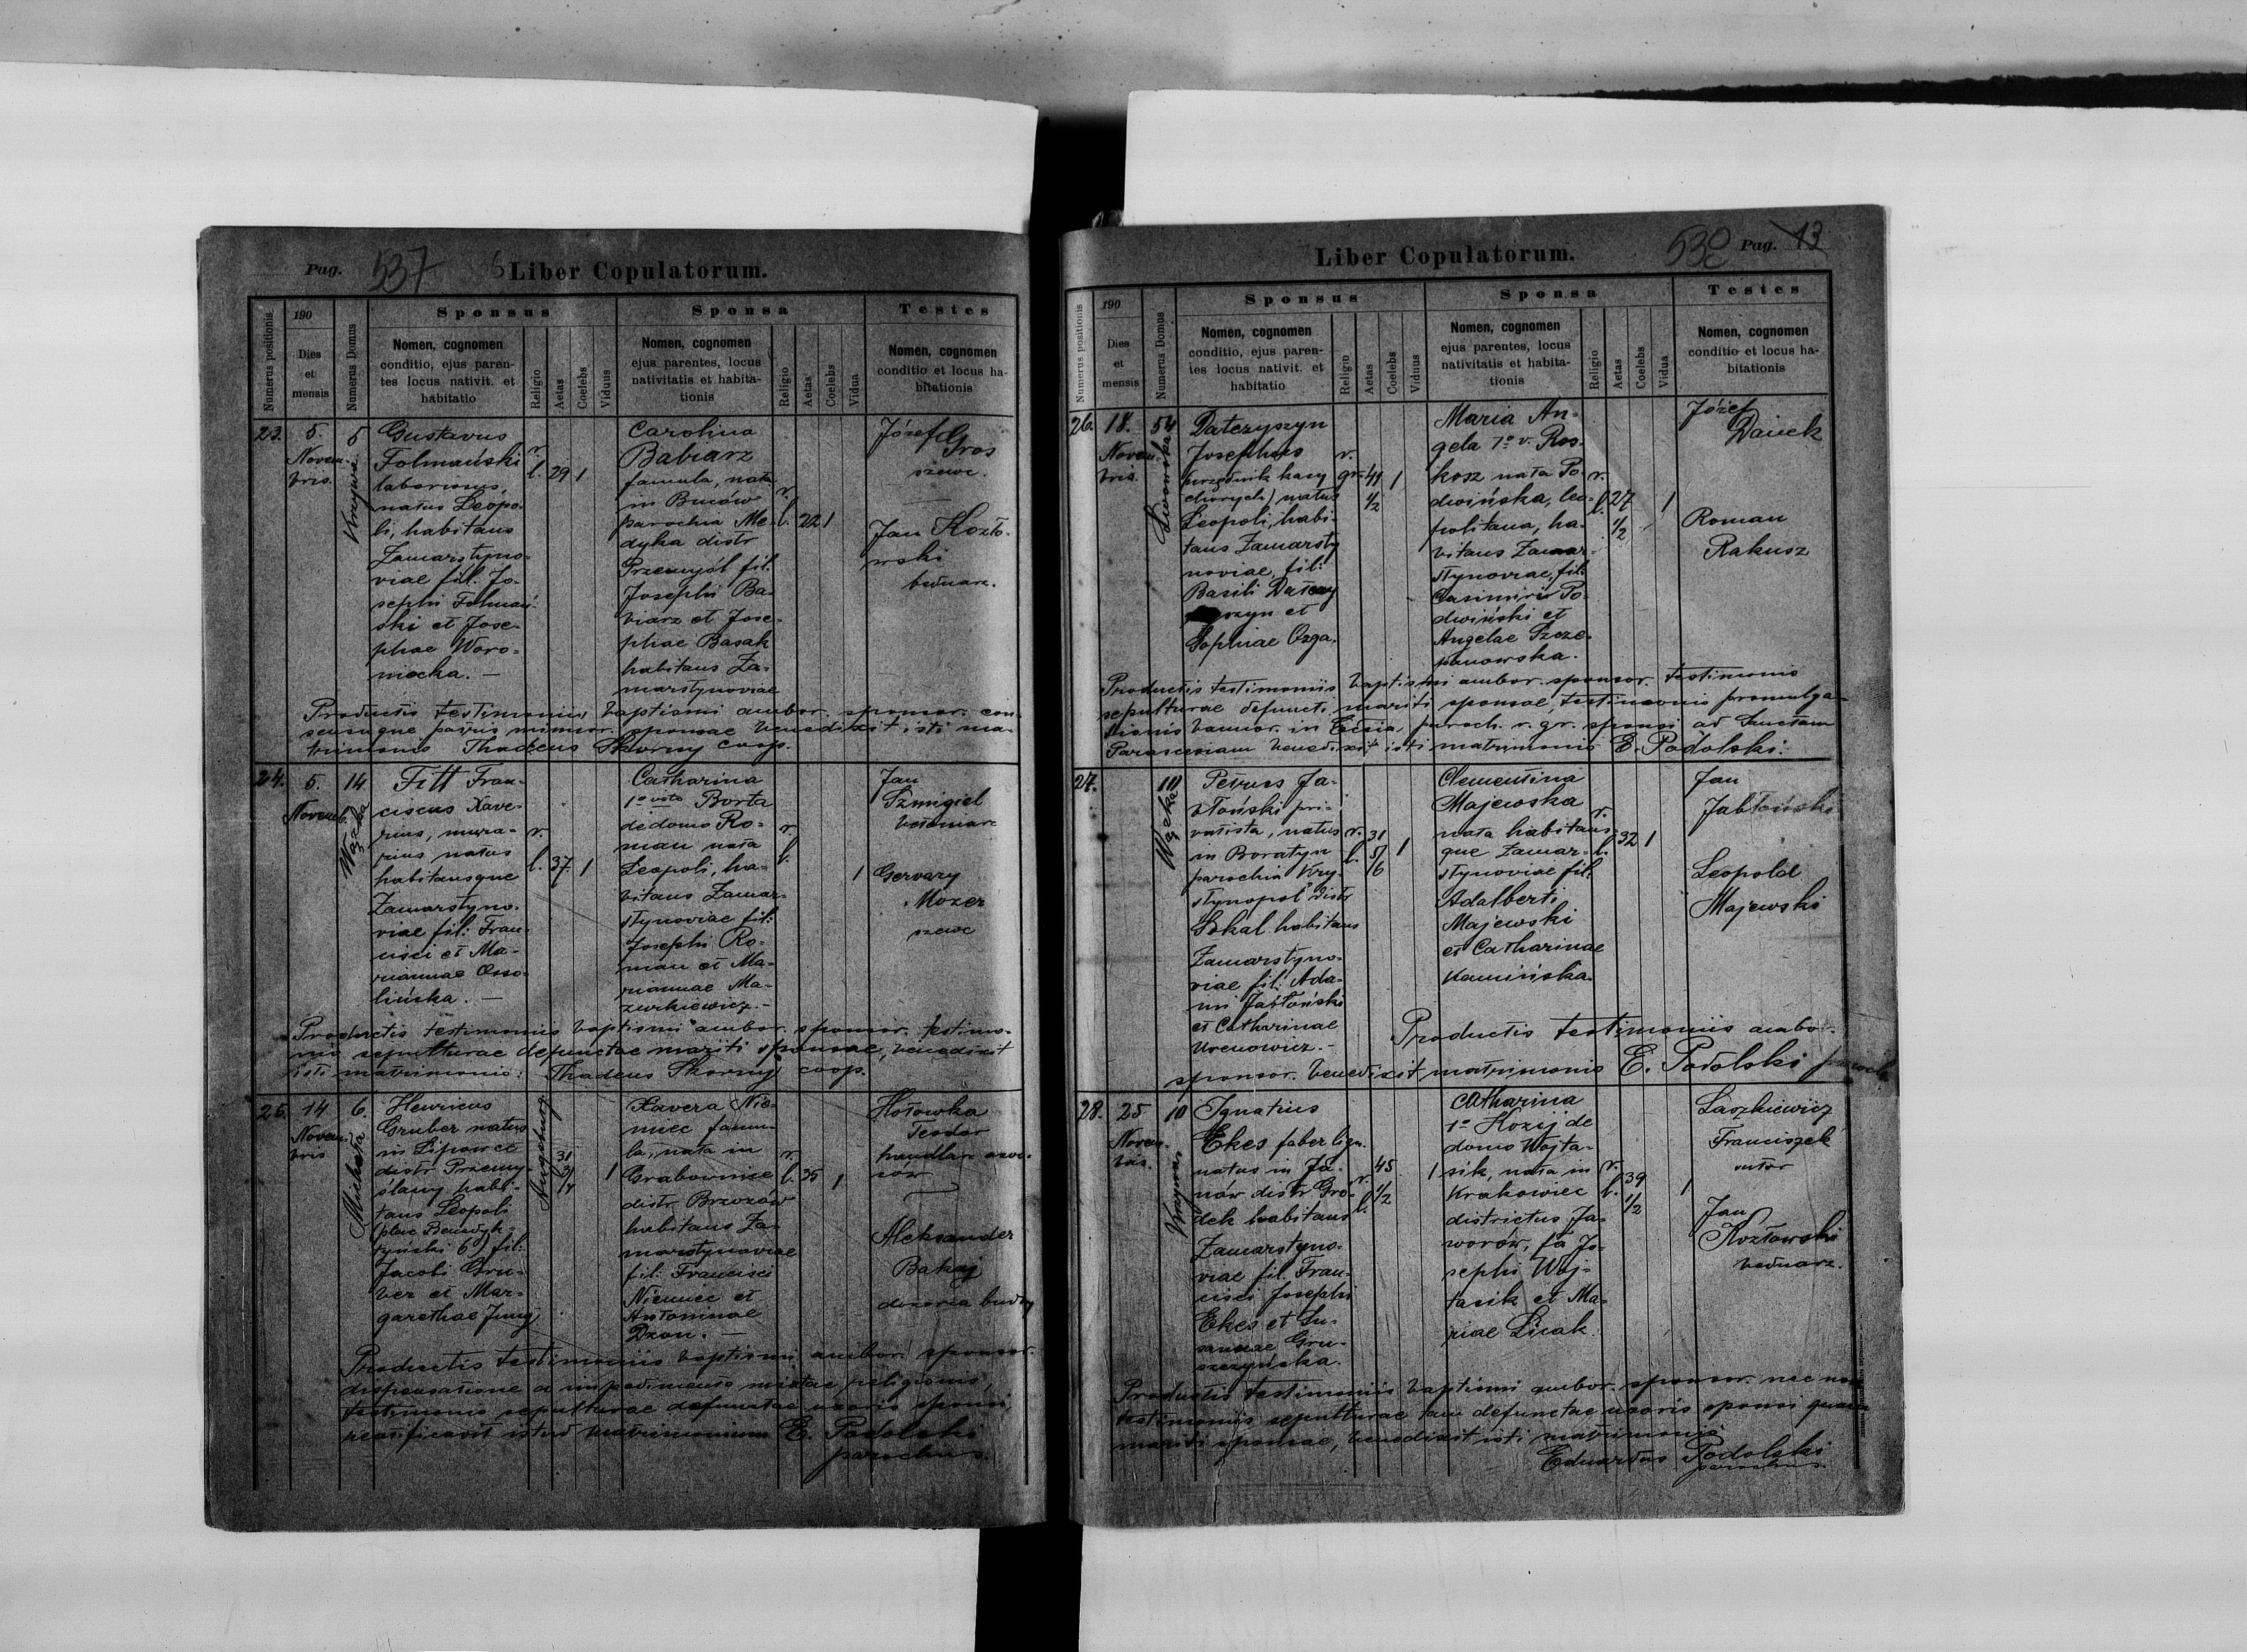 Pag. 537
Liber Copulatorum.
Numerus positionis
190
Dies
et
mensis
Numerus Domus
Sponsus
Nomen, cognomen
conditio, ejus paren-
tes locus nativit. et
habitatio
Religio
Aetas
Coelebs
Viduus
Sponsa
Nomen, cognomen
ejus parentes, locus
nativitatis et habita-
tionis
Religio
Aetas
Coelebs
Vidua
Testes
Nomen, cognomen
conditio et locus ha-
bitationis
23.
5.
Novem-
bris.
5
Krzywa
Gustavus
Folmański
laborius,
natus Leopo-
li, habitans
Zamarstyno-
viae fil. Jo-
sephi Folmań-
ski et Jose-
phae Woro-
niecka. —
r.
l.
29
1
Carolina
Babiarz
famula, nata
in Buców
parochia Me-
dyka distr
Przemyśl fil.
Josephi Ba-
biarz et Jose-
phae Basak
habitans Za-
marstynoviae
r.
l.
22
1
Józef Gros
szewc.
Jan Kozło-
wski
bednarz.
Productis testimoniis baptismi ambor. sponsor. con-
sensuque patris minor. sponsae benedixit isti ma-
trimonio Thadeus Skorny coop.
24.
5.
Novemb.
14
Wązka
Fitt Fran-
ciscus Xave-
rius, mura-
rius natus
habitansque
Zamarstyno-
viae fil: Fran-
cisci et Ma-
riannae Osso-
lińska. —
r.
l.
37
1
Catharina
1o voto Borta
de domo Ro-
man nata
Leopoli, ha-
bitans Zamar-
stynoviae fil:
Josephi Ro-
man et Ma-
riannae Ma-
zurkiewicz. —
r.
l.
1
Jan
Szmigiel
Gervazy
Mozer
szewc
Productis testimoniis baptismi ambor. sponsor. testimo-
nio sepulturae defunctae mariti sponsae, benedixit
isti matrimonio: Thadeus Skorny coop.
25.
14
Novem-
bris
6.
Michała
Henricus
Gruber natus
in Lipowce
distr Przemy-
ślany habi-
tans Leopoli
(plac Benedyk-
tyński 6) fil:
Jacobi Gru-
ber et Mar-
garethae Jung
Augsburg
31
3/
/4
1
Xavera Nie-
miec famu-
la, nata in
Grabownice
distr Brzozów
habitans Za-
marstynoviae
fil: Francisci
Niemiec et
Antoninae
Dzon. —
r.
l.
35
1
Hołowka
Teodor
handlarz owo-
ców
Aleksander
Bakaj
dozorca budy
Productis testimoniis baptismi ambor. sponsor.
dispensatione a impedimento mixtae religionis,
testimonio sepulturae defunctae uxoris sponsi,
ratificavit istud matrimonium E. Podolski
parochus.
Liber Copulatorum.
538 Pag. 13
Numerus positionis
190
Dies
et
mensis
Numerus Domus
Sponsus
Nomen, cognomen
conditio, ejus paren-
tes locus nativit. et
habitatio
Religio
Aetas
Coelebs
Viduus
Sponsa
Nomen, cognomen
ejus parentes, locus
nativitatis et habita-
tionis
Religio
Aetas
Coelebs
Vidua
Testes
Nomen, cognomen
conditio et locus ha-
bitationis
26.
18.
Novem-
bris.
54
Lwowska
Datczyszyn
Josephus
(urzędnik kasy
chorych) natus
Leopoli, habi-
tans Zamarsty
noviae, fil:
Basili Datczy
szyn et
Sophiae Ozga.
r.
gr.
41
1/2
1
Maria An-
gela 1o v. Ros-
kosz nata Po-
dwińska, leo-
politana, ha-
bitans Zamar-
stynoviae, fil:
Casimiri Po-
dwiński et
Angelae Szcze-
panowska.
r.
l.
27
1/2
1
Józef
Danek
Roman
Rakusz
Productis testimoniis baptismi ambor. sponsor. testimonio
sepulturae defuncti mariti sponsae, testimonio promulga-
tionis bannor. in Ecclsia paroch. r. gr. sponsi ad Sanctam
Parasceviam benedixit isti matrimonio E. Podolski.
27.
10
Wązka
Petrus Ja-
błoński pri-
vatista, natus
in Boratyn
parochia Kry-
stynopol distr
Sokal habitans
Zamarstyno-
viae fil: Ada-
mi Jabłoński
et Catharinae
Urenowicz. —
r.
l.
31
5/
6
1
Clementina
Majewska
nata habitans-
que Zamar-
stynoviae fil.
Adalberti
Majewski
et Catharinae
Kamińska.
r.
l.
32
1
Jan
Jabłoński
Leopold
Majewski
Productis testimoniis ambo-
sponsor. benedixit matrimonio E. Podolski paroch
28.
25
Novem-
bris.
10
Krzywa
Ignatius
Ekes faber lign.
natus in Ja-
nów distr Gro-
dek habitans
Zamarstyno-
viae fil. Fran-
cisci Josephi
Ekes et Su-
sannae Gru-
szczyńska.
r.
l.
45
1/2
1
Catharina
1o Kozij de
domo Wojta-
sik, nata in
Krakowiec
districtus Ja-
worów, fa Jo-
sephi Woj-
tasik et Ma-
riae Licak.
r.
l.
39
1/2
1
Laszkiewicz
Franciszek
Jan
Kozłowski
bednarz.
Productis testimoniis baptismi ambor. sponsor. nec non
testimoniis sepulturae tam defunctae uxoris sponsi quam
mariti sponsae, benedixit isti matrimonio
Eduardus Podolski
parochus